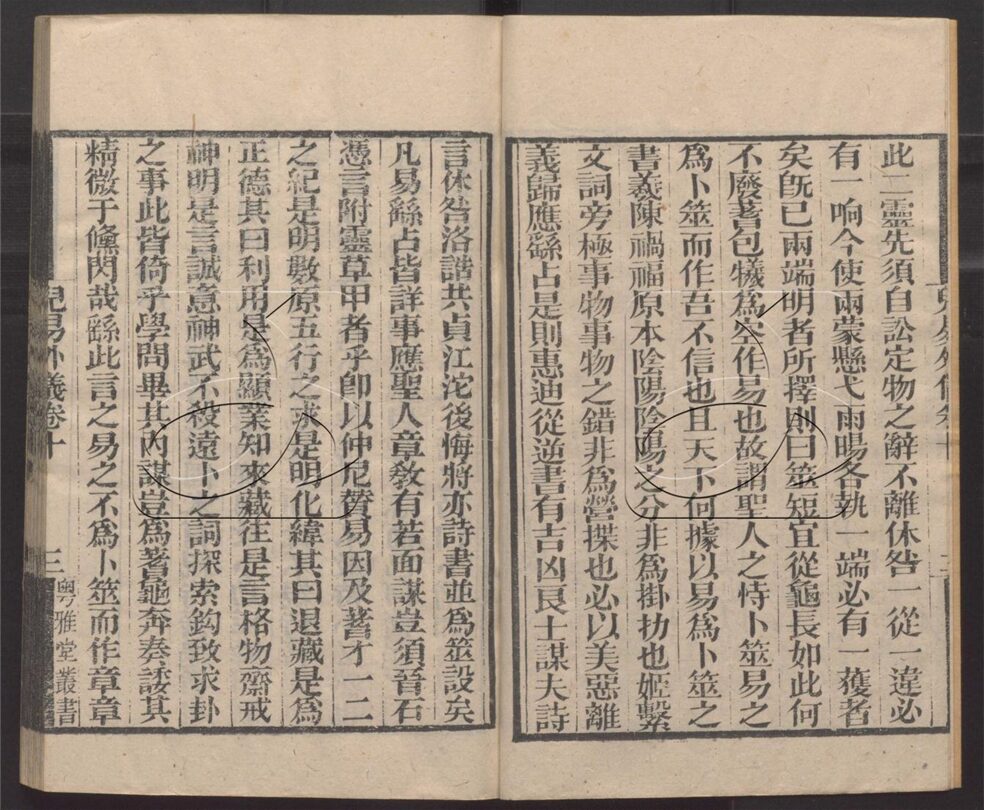 此二靈先須自訟定物之辭不離休咎一從一違必
有一响今使兩蒙懸弋雨暘各執一端必有一獲者
矣旣已兩端明者所擇則曰筮短宜從龜長如此何
不廢蓍包犧爲空作易也故謂聖人之恃卜筮易之
爲卜筮而作吾不信也且天下何據以易爲卜筮之
書羲陳禍福原本陰陽陰陽之分非爲掛扐也姬繫
文詞旁極事物事物之錯非爲營揲也必以美惡離
義歸應繇占是則惠迪從逆書有吉凶艮士謀夫詩
言休咎洛誥共貞江沱後悔將亦詩書並爲筮設矣
凡易繇占皆詳事應聖人章敎有若面謀豈須晉石
憑言附靈草甲者乎卽以仲尼贊易因及蓍才一二
之紀是明數原五行之求是明化緯其曰退藏是爲
正德其曰利用是爲顯業知來藏往是言格物齋戒
神明是言誠意神武不殺遠卜之詞探索鈎致求卦
之事此皆倚乎學問畢其內謀豈爲蓍龜奔奏諉其
精微于儵閃哉繇此言之易之不爲卜筮而作章章
兒易外儀卷十
三
粵雅堂叢書